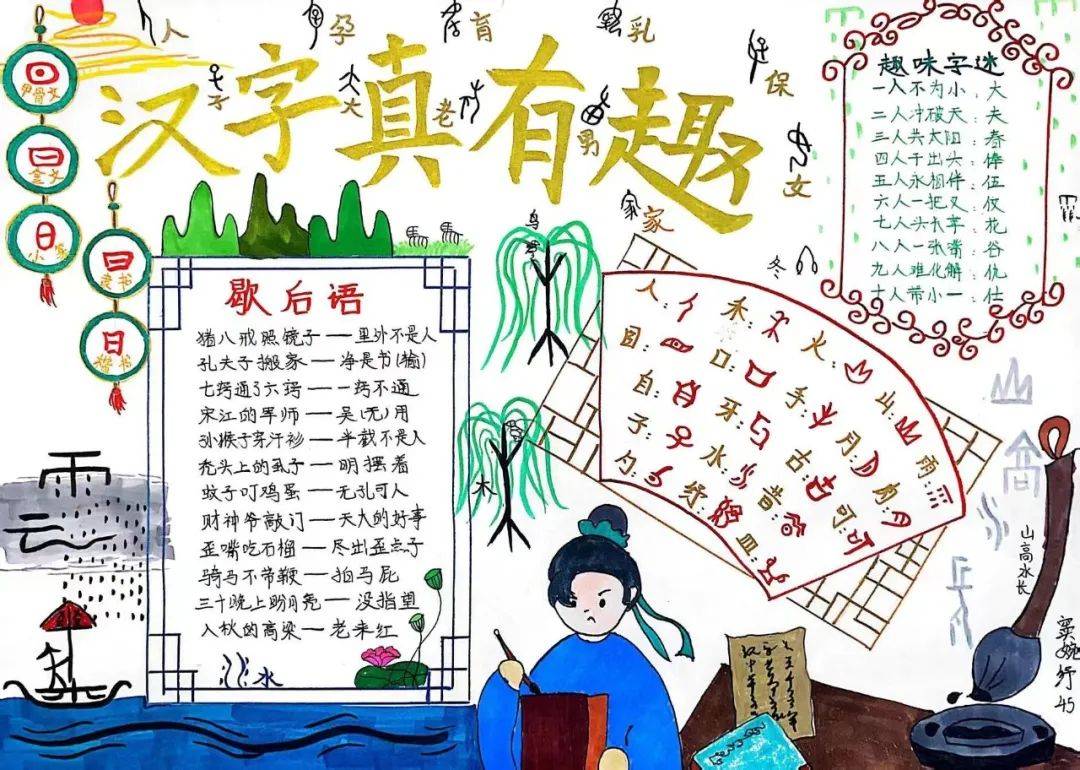 汉字真有趣
人
孕
育
乳
保
女
子
大
老
男
家
冬
鸟
马
木
甲骨文
金文
小篆
隶书
楷书
歇后语
猪八戒照镜子——里外不是人
孔夫子搬家——净是书(输)
七窍通了六窍——一窍不通
宋江的军师——吴(无)用
孙猴子穿汗衫——半截不是人
秃头上的虱子——明摆着
蚊子叮鸡蛋——无孔可入
财神爷敲门——天大的好事
歪嘴吃石榴——尽出歪点子
骑马不带鞭——拍马屁
三十晚上盼月亮——没指望
入秋的高粱——老来红
水
趣味字迷
一人不为小:大
二人冲破天:夫
三人共太阳:春
四人干出头:傘
五人永相伴:伍
六人一把叉:仅
七人头长草:花
八人一张嘴:谷
九人难化解:仇
十人带小一:仕
人:
禾:
火:
山:
雨:
目:
口:
手:
月:
自:
牙:
古:
子:
水:
昔:
可:
勺:
皿:
山高水长